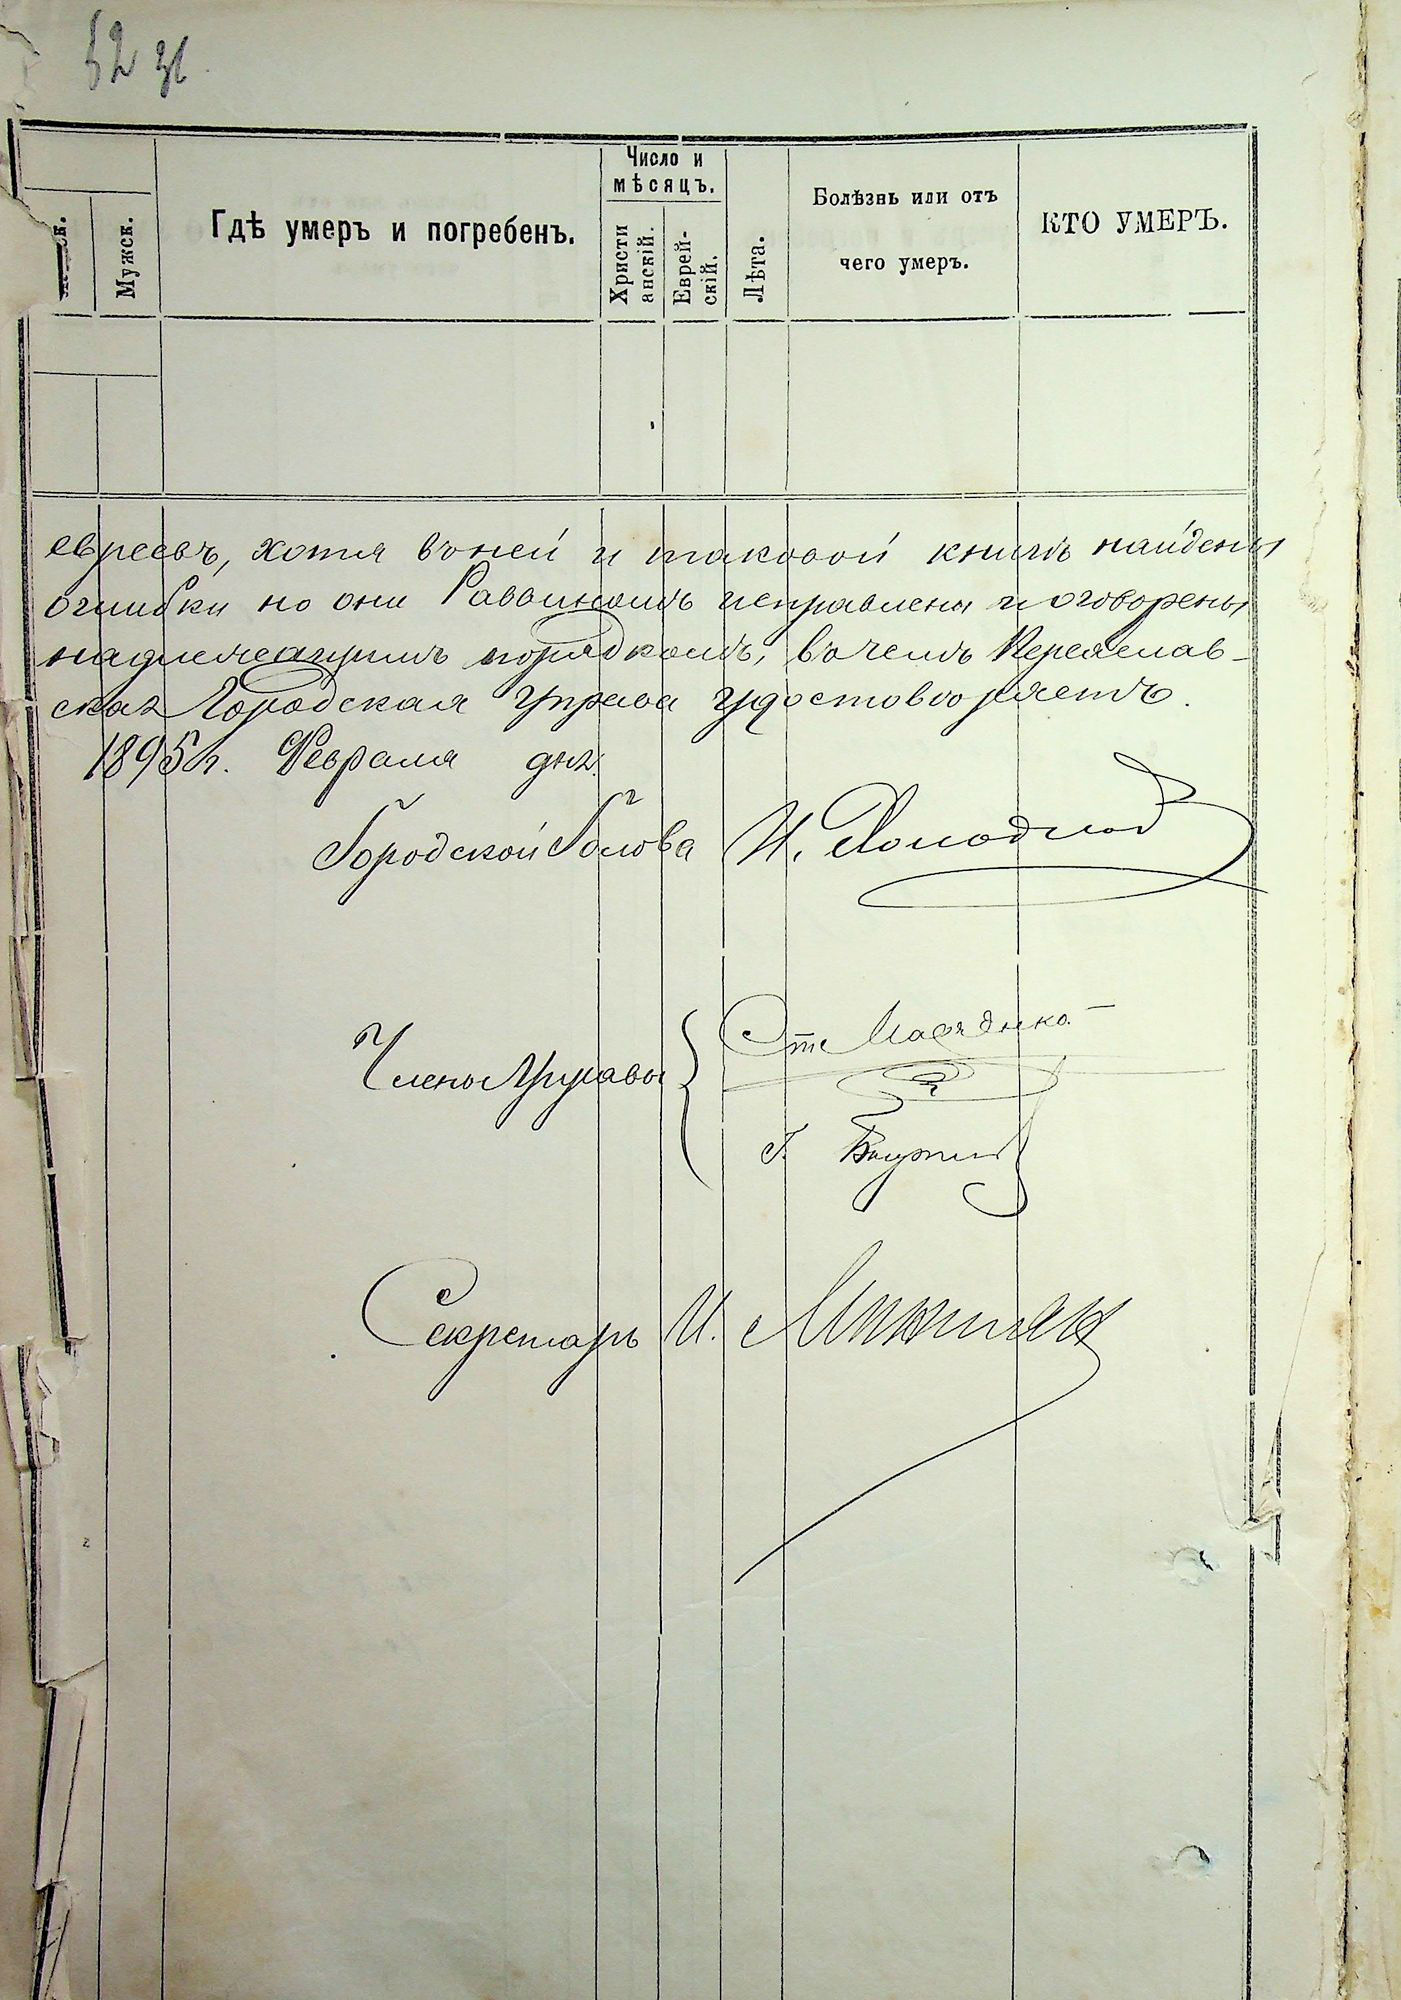 52
Мужск.
Гдѣ умеръ и погребенъ.
Число и мѣсяцъ.
Христианскій.
Еврейскій.
Лѣта.
Болѣзнь или отъ чего умеръ.
КТО УМЕРЪ.
евреевъ, хотя въ ней и таковой книгѣ найдены
ошибки но они Раввиномъ исправлены и оговорены
надлежащимъ порядкомъ, въ чемъ Переяслав-
ская Городская Управа удостовѣряетъ.
1895 г. Февраля дня.
Городской Голова И.
Члены Управы
Г.
Секретарь И.